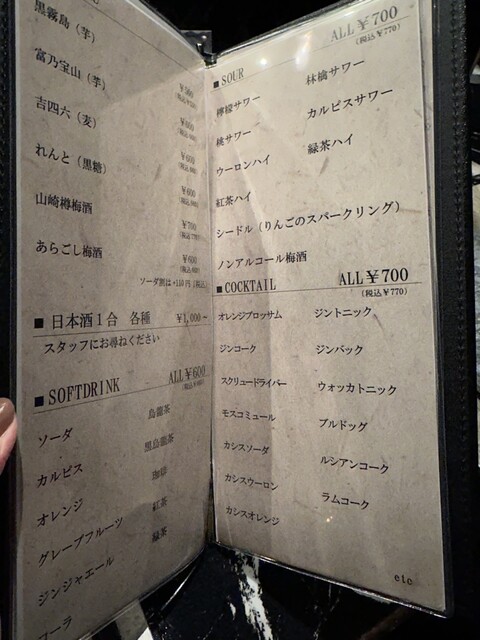 黒霧島（芋）
¥500
富乃宝山（芋）
¥600
吉四六（麦）
¥600
れんと（黒糖）
¥600
山崎樽梅酒
¥700
(税込¥770)
あらごし梅酒
¥600
ソーダ割は+110円（税込）
■ 日本酒1合 各種 ¥1,000～
スタッフにお尋ねください
■ SOFTDRINK ALL¥600
ソーダ 烏龍茶
カルピス 黒烏龍茶
オレンジ 珈琲
グレープフルーツ 紅茶
ジンジャエール 緑茶
コーラ
ALL¥700
(税込¥770)
■ SOUR
檸檬サワー 林檎サワー
桃サワー カルピスサワー
ウーロンハイ 緑茶ハイ
紅茶ハイ
シードル（りんごのスパークリング）
ノンアルコール梅酒
■ COCKTAIL ALL¥700
(税込¥770)
オレンジブロッサム ジントニック
ジンコーク ジンバック
スクリュードライバー ウォッカトニック
モスコミュール ブルドッグ
カシスソーダ ルシアンコーク
カシスウーロン ラムコーク
カシスオレンジ
etc